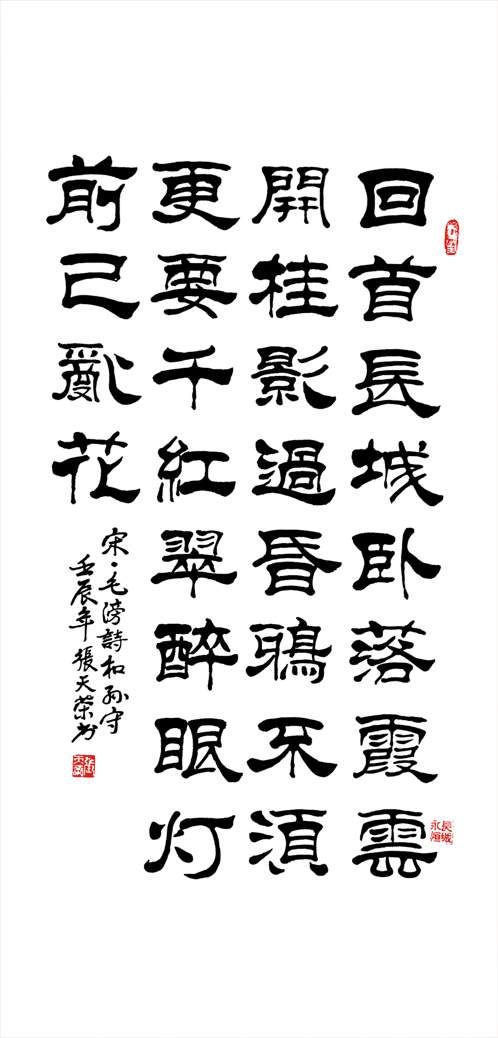 回首長城卧落霞雲
開桂影過昏鴉不須
更要千紅翠醉眼灯
前已亂花
宋·毛滂詩和孙守
壬辰年張天榮书
長城
永恒